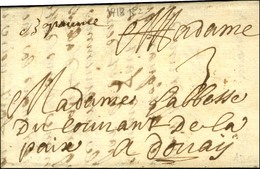 Bapaume
A Madame
3
Madame Labbesse
Du Couvant De La
paix
a douaÿ